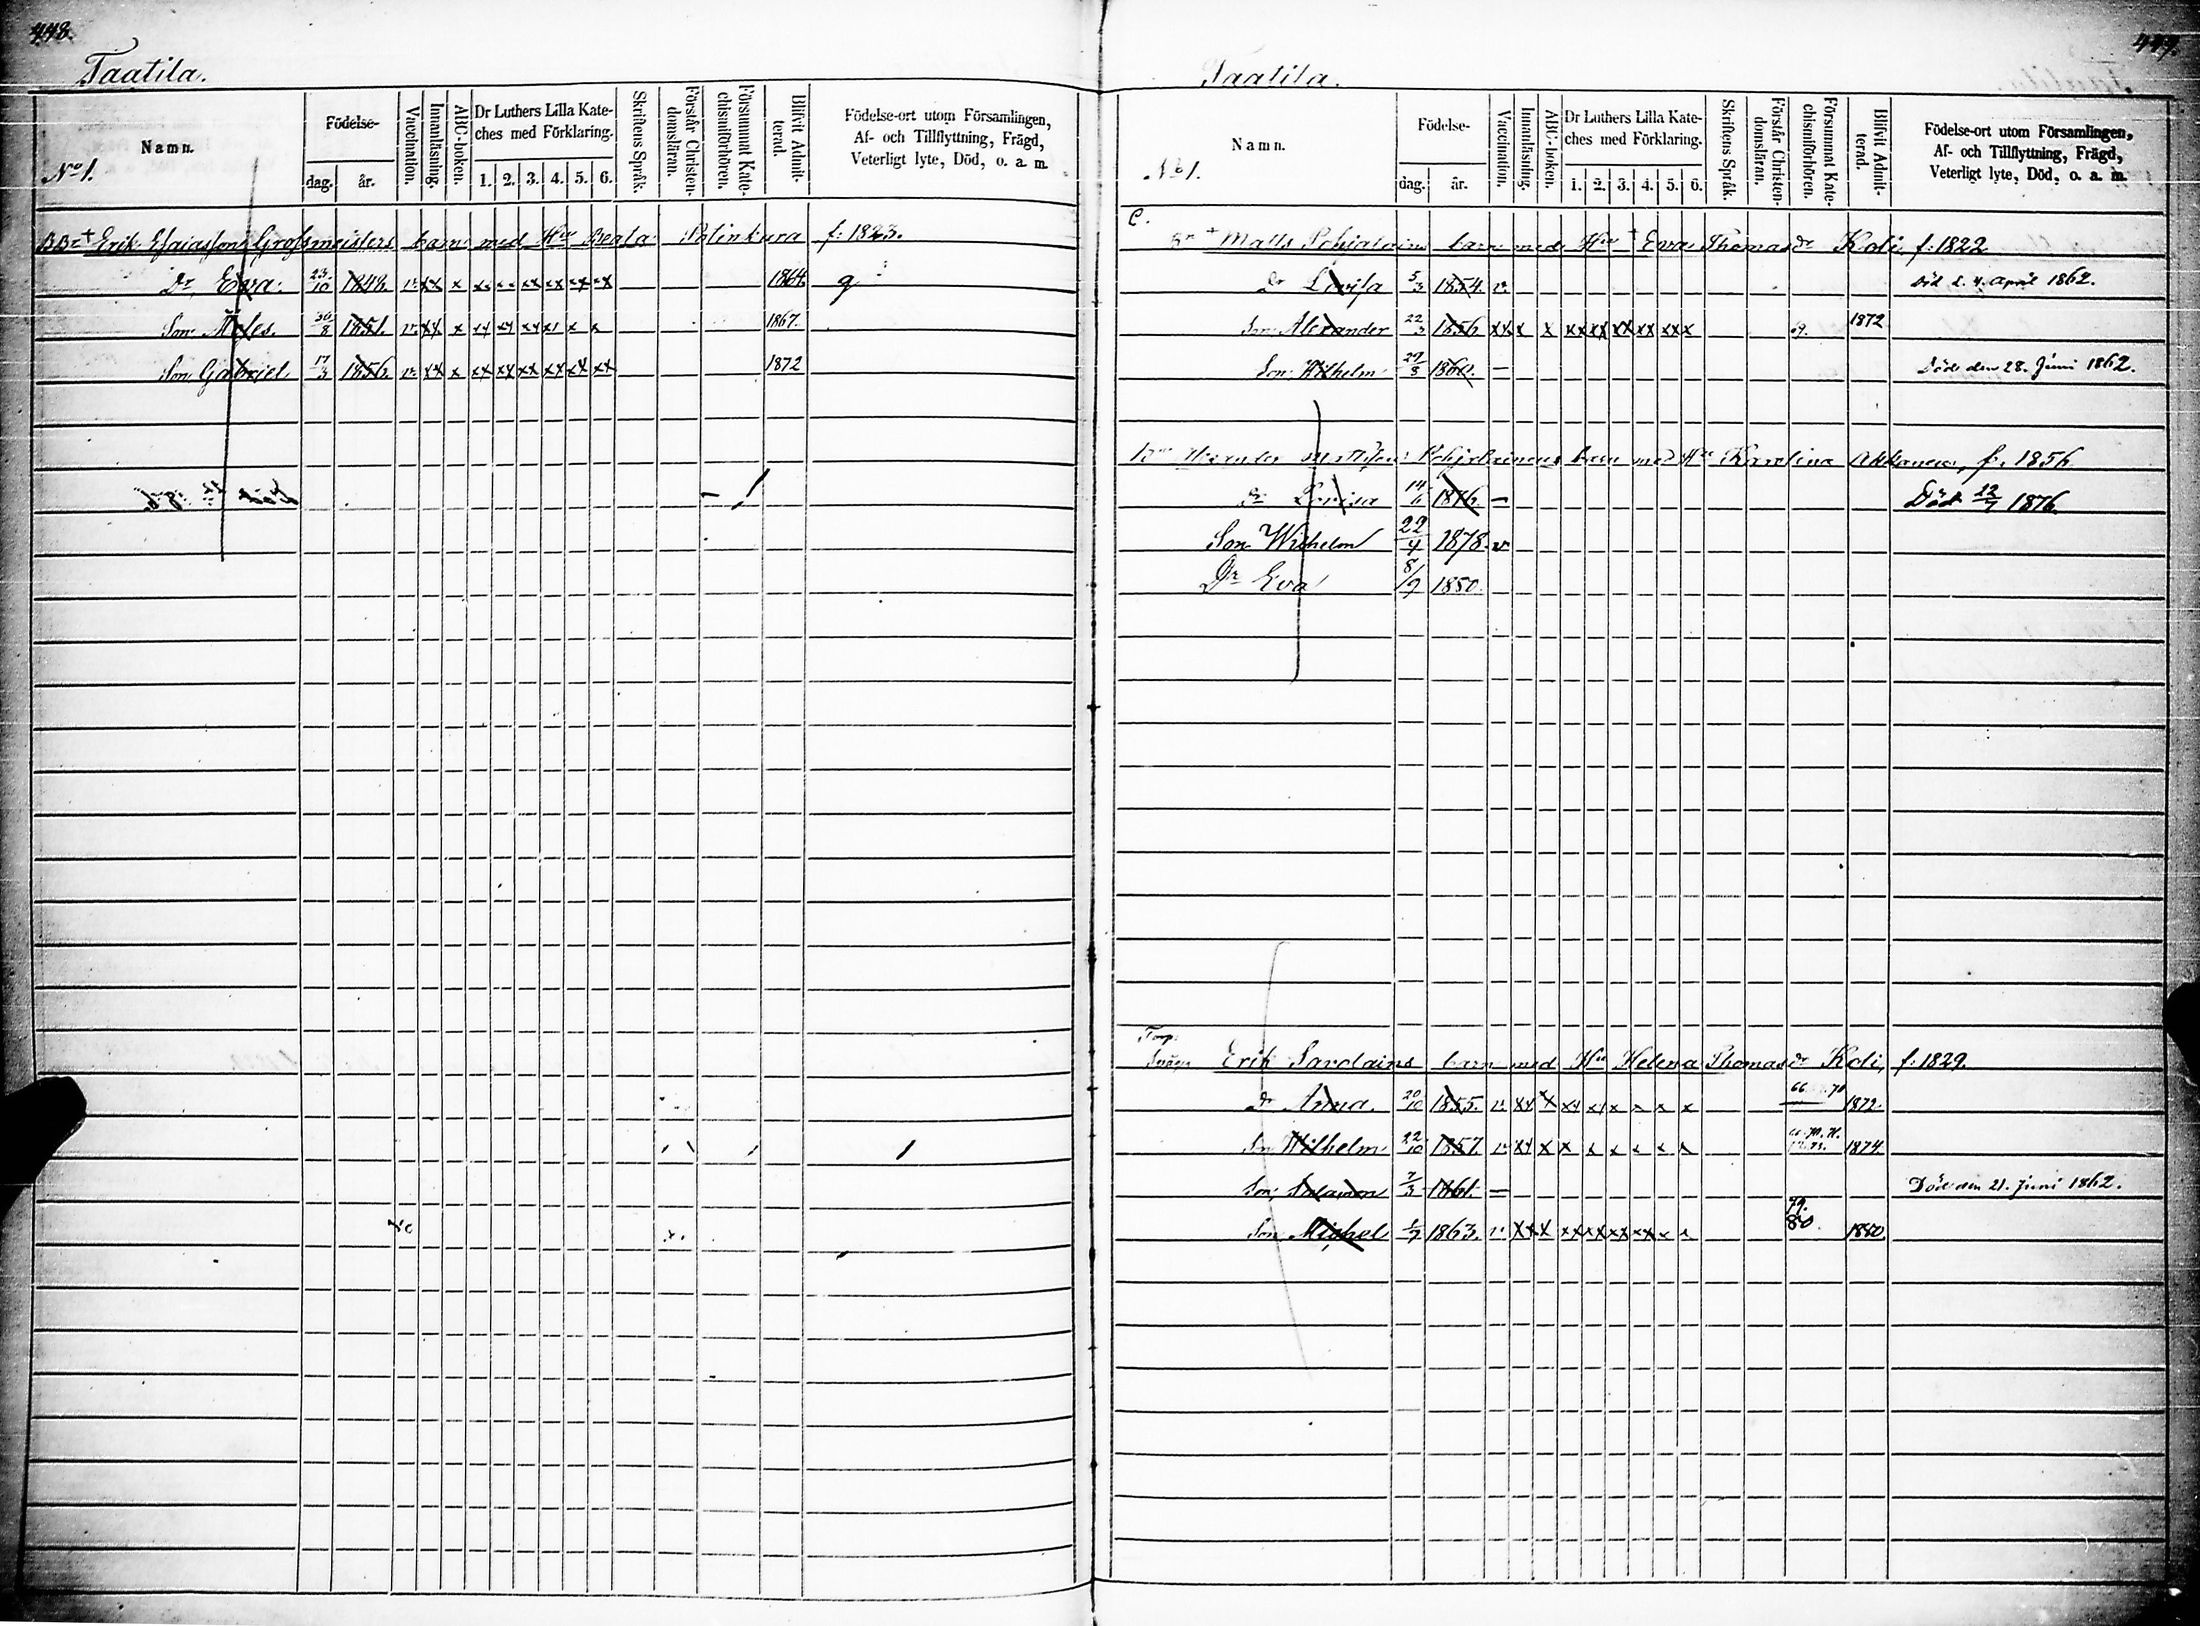 448.
Taatila.
Namn.
No 1.
Födelse-
dag. år.
Vaccination.
Innanläsning.
ABC-boken.
Dr Luthers Lilla Kate-
ches med Förklaring.
1. 2. 3. 4. 5. 6.
Skriftens Språk.
Förstår Christen-
domsläran.
Försummat Kate-
chismiförhören.
Blifvit Admit-
terad.
Födelse-ort utom Församlingen,
Af- och Tillflyttning, Frägd,
Veterligt lyte, Död, o. a. m.
Erik Esaiasson Grofsmeisters barn med Hu Beata f: 1823.
Dr Eva. 23/10 1848. v. xx x xx xx xx xx xx xx 1864. g
Son Moses. 30/8 1851. v. xx x xx xx xx x x x 1867.
Son Gabriel 17/3 1856. v. xx x xx xx xx xx xx xx 1872
449.
Taatila.
Namn.
No 1.
Födelse-
dag. år.
Vaccination.
Innanläsning.
ABC-boken.
Dr Luthers Lilla Kate-
ches med Förklaring.
1. 2. 3. 4. 5. 6.
Skriftens Språk.
Förstår Christen-
domsläran.
Försummat Kate-
chismiförhören.
Blifvit Admit-
terad.
Födelse-ort utom Församlingen,
Af- och Tillflyttning, Frägd,
Veterligt lyte, Död, o. a. m.
C.
+ Matts Pohjalains barn med Hu + Eva Thomas dr Koli, f: 1822
dr Lovisa 5/3 1854. v. Död d. 4. April 1862.
Son Alexander 22/3 1856 xx x x xx xx xx xx xx x 69. 1872
Son Wilhelm 29/8 1860. – Död den 28. Juni 1862.
Pohjalainens barn med Hu Karolina Akkanen, f. 1856
dr Lovisa 14/6 1876. – Död 22/7 1876.
Son Wilhelm 22/4 1878. v
Dr Eva 8/9 1880.
Torp.
Erik Savolains barn med Hu Helena Thomas dr Koli, f: 1829.
dr Anna. 20/10 1855. v. xx x xx xx x x x x 1872.
Son Wilhelm 22/10 1857. v. xx x x x x x x x 1874.
Son Salamon 7/3 1861. – Död den 21. Juni 1862.
79.
Son Michel 1/7 1863. v. xx x xx xx xx xx x x 80. 1880